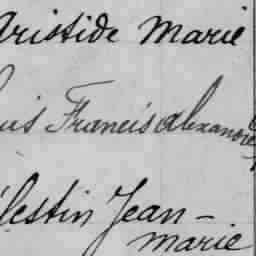 Aristide Marie
uis Francis alexandre
lestin Jean-
marie